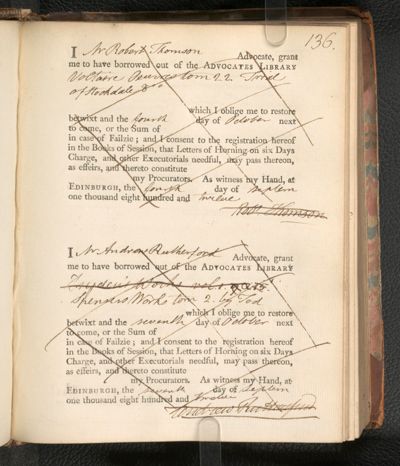 136.
I Mr Robert Thomson Advocate, grant
me to have borrowed out of the ADVOCATES LIBRARY
Voltaire Oeuvres tom 22
of Stockdale 8vo
which I oblige me to restore
betwixt and the fourth day of October next
to come, or the Sum of
in case of Failzie; and I consent to the registration hereof
in the Books of Session, that Letters of Horning on six Days
Charge, and other Executorials needful, may pass thereon,
as effeirs, and thereto constitute
my Procurators. As witness my Hand, at
EDINBURGH, the fourth day of Septem
one thousand eight hundred and twelve
Robt. Thomson
I Mr Andrew Rutherford Advocate, grant
me to have borrowed out of the ADVOCATES LIBRARY
Dryden's Works vol
Spensers Works tom 2. by Tod
which I oblige me to restore
betwixt and the seventh day of October next
to come, or the Sum of
in case of Failzie; and I consent to the registration hereof
in the Books of Session, that Letters of Horning on six Days
Charge, and other Executorials needful, may pass thereon,
as effeirs, and thereto constitute
my Procurators. As witness my Hand, at
EDINBURGH, the seventh day of Septem
one thousand eight hundred and twelve
Andrew Rutherfurd